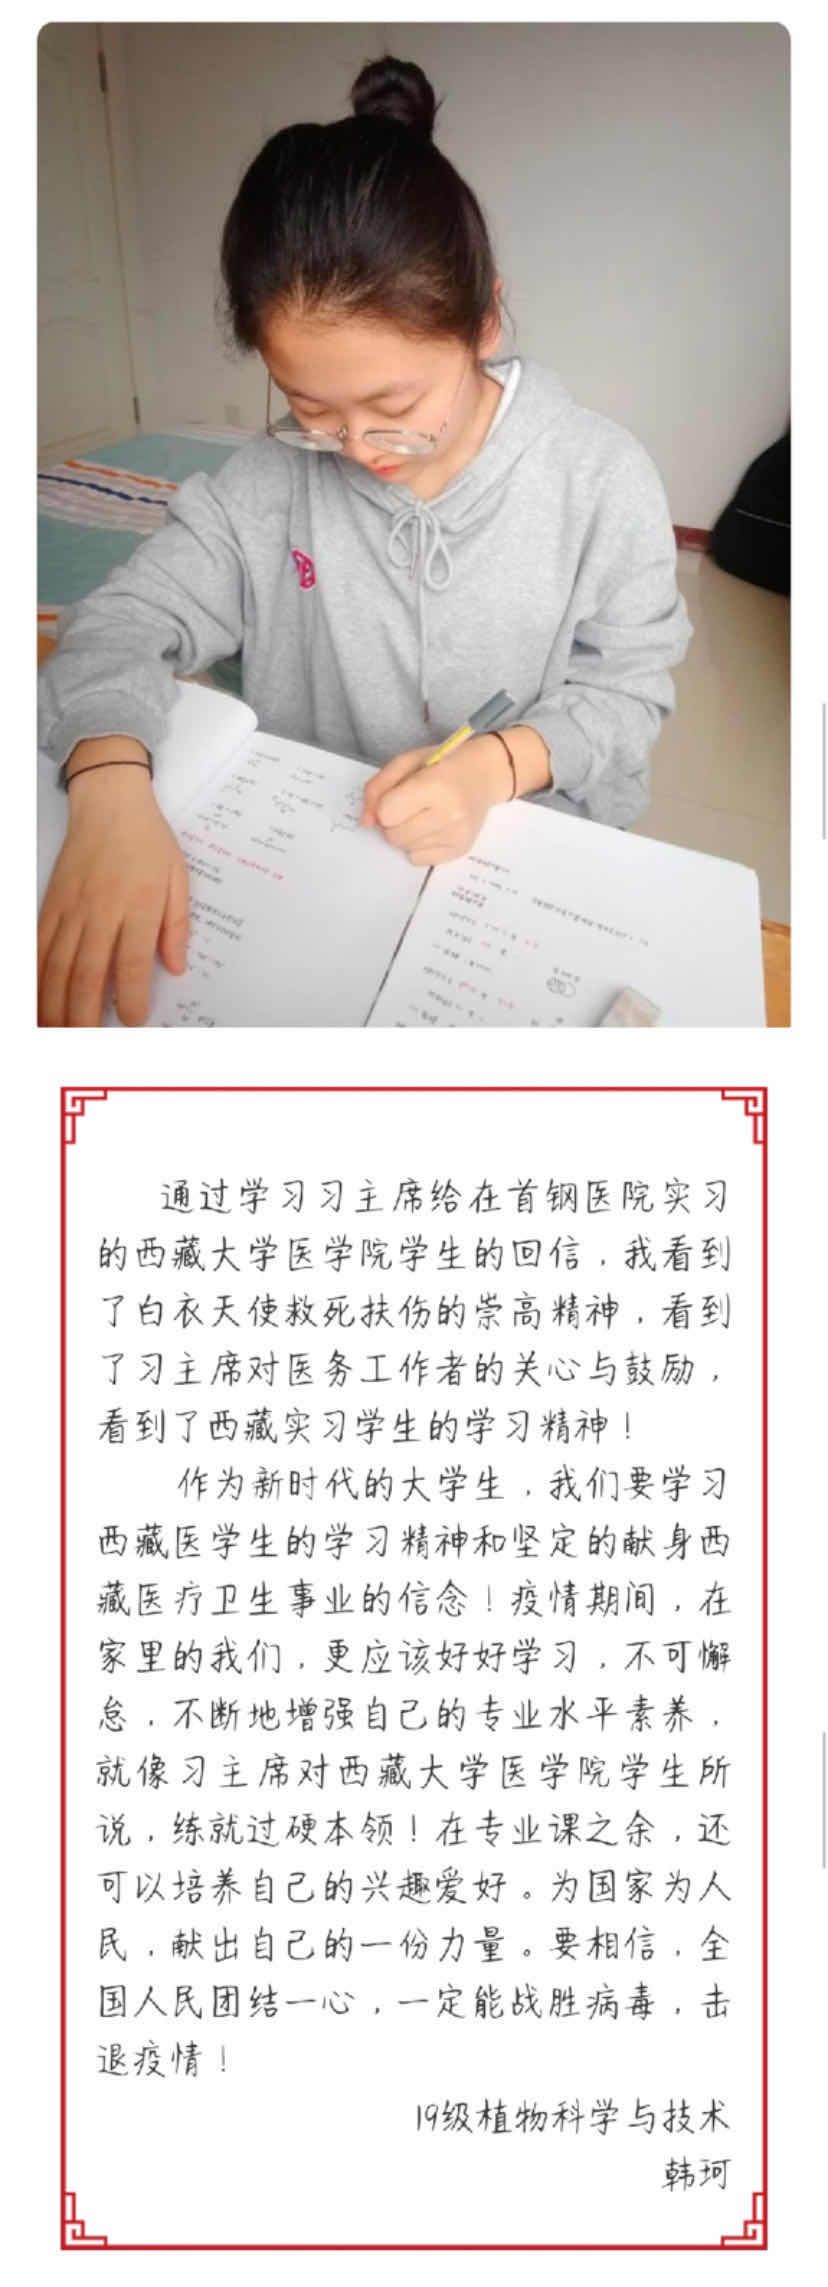 通过学习习主席给在首钢医院实习
的西藏大学医学院学生的回信，我看到
了白衣天使救死扶伤的崇高精神，看到
了习主席对医务工作者的关心与鼓励，
看到了西藏实习学生的学习精神！
作为新时代的大学生，我们要学习
西藏医学生的学习精神和坚定的献身西
藏医疗卫生事业的信念！疫情期间，在
家里的我们，更应该好好学习，不可懈
怠，不断地增强自己的专业水平素养，
就像习主席对西藏大学医学院学生所
说，练就过硬本领！在专业课之余，还
可以培养自己的兴趣爱好。为国家为人
民，献出自己的一份力量。要相信，全
国人民团结一心，一定能战胜病毒，击
退疫情！
19级植物科学与技术
韩珂